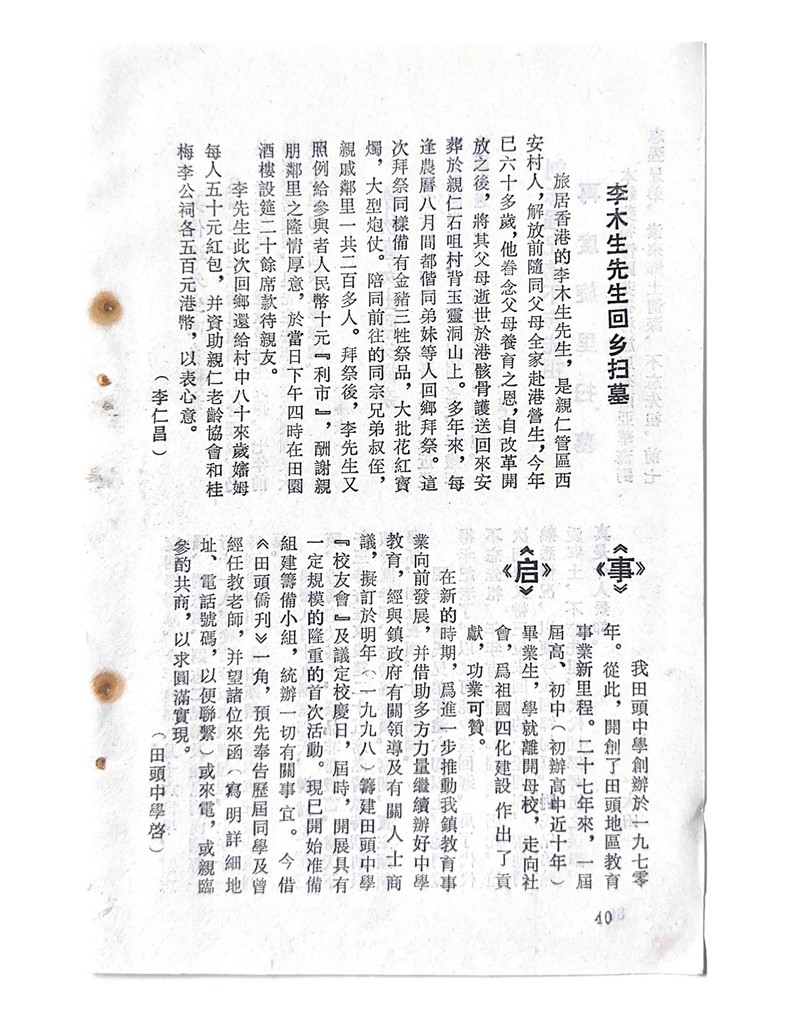 李木生先生回乡扫墓
旅居香港的李木生先生，是親仁管區西
安村人，解放前隨同父母全家赴港營生，今年
已六十多歲，他眷念父母養育之恩，自改革開
放之後，將其父母逝世於港骸骨護送回來安
葬於親仁石咀村背玉靈洞山上。多年來，每
逢農曆八月間都偕同弟妹等人回鄉拜祭。這
次拜祭同樣備有金豬三牲祭品，大批花紅寳
燭，大型炮仗。陪同前往的同宗兄弟叔侄，
親戚鄰里一共二百多人。拜祭後，李先生又
照例給參與者人民幣十元『利市』，酬謝親
朋鄰里之隆情厚意，於當日下午四時在田園
酒樓設筵二十餘席款待親友。
李先生此次回鄉還給村中八十來歲嬸姆
每人五十元紅包，并資助親仁老齡協會和桂
梅李公祠各五百元港幣，以表心意。
（李仁昌）
《事》
《启》
我田頭中學創辦於一九七零
年。從此，開創了田頭地區教育
事業新里程。二十七年來，一屆
屆高、初中（初辦高中近十年）
畢業生，學就離開母校，走向社
會，爲祖國四化建設作出了貢
獻，功業可贊。
在新的時期，爲進一步推動我鎮教育事
業向前發展，并借助多方力量繼續辦好中學
教育，經與鎮政府有關領導及有關人士商
議，擬訂於明年（一九九八）籌建田頭中學
『校友會』及議定校慶日，屆時，開展具有
一定規模的隆重的首次活動。現已開始准備
組建籌備小組，統辦一切有關事宜。今借
《田頭僑刋》一角，預先奉告歷屆同學及曾
經任教老師，并望諸位來函（寫明詳細地
址、電話號碼，以便聯繫）或來電，或親臨
參酌共商，以求圓滿實現。
（田頭中學啓）
40